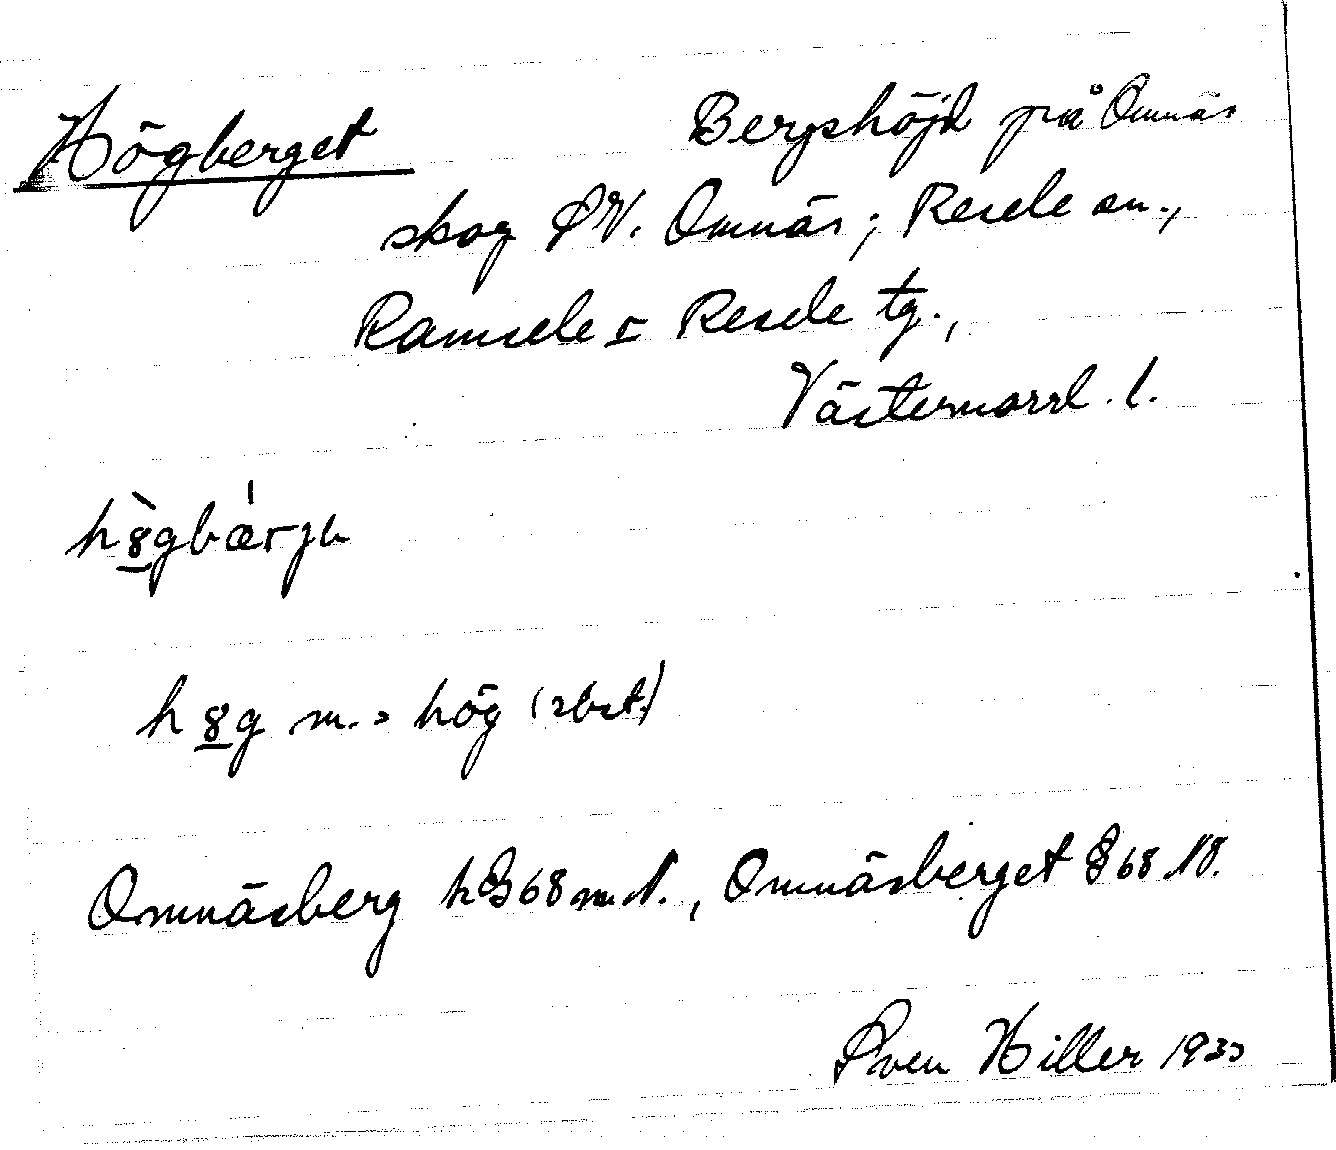 Högberget Bergshöjd på Omnäs
skog SV. Omnäs; Resele sn.,
Ramsele o Resele tg.,
Västernorrl. l.
hö̀gbærjə
høg m. = hög (sbst.)
Omnäsberg 68 N., Omnäsberget 68 NV.
Sven Hiller 1933